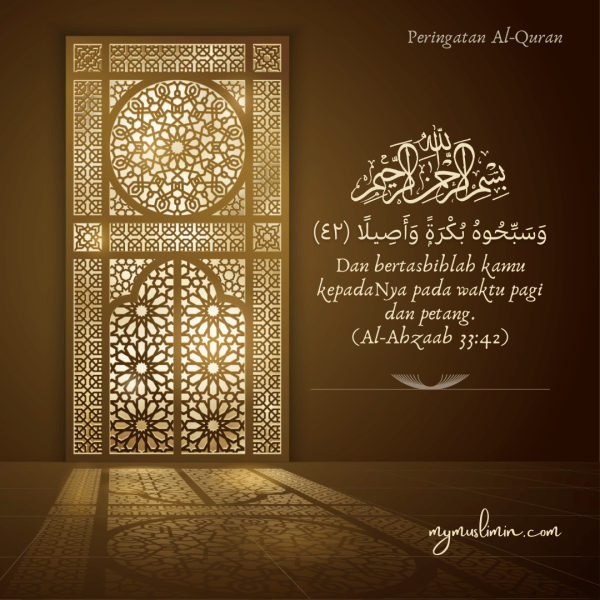 Peringatan Al-Quran
بِسْمِ اللَّهِ الرَّحْمَٰنِ الرَّحِيمِ
وَسَبِّحُوهُ بُكْرَةً وَأَصِيلًا (٤٢)
Dan bertasbihlah kamu
kepadaNya pada waktu pagi
dan petang.
(Al-Ahzaab 33:42)
mymuslimin.com